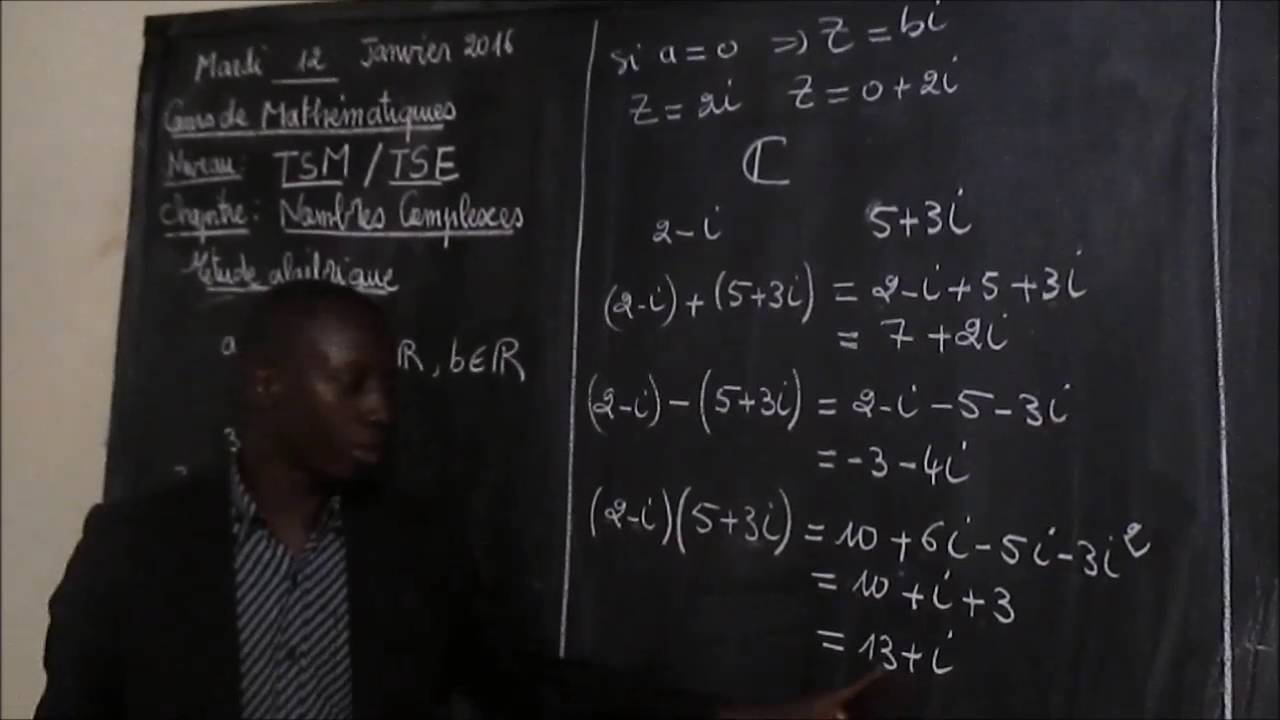 Mardi 12 Janvier 2016
Cours de Mathématiques
Niveau: TSM / TSE
Chapitre: Nombres Complexes
Etude algébrique
a ℝ, b∈ℝ
3
si a = 0 => Z = bi
Z = 2i Z = 0 + 2i
ℂ
2-i 5+3i
(2-i) + (5+3i) = 2-i+5+3i
= 7+2i
(2-i) - (5+3i) = 2-i-5-3i
= -3-4i
(2-i)(5+3i) = 10+6i-5i-3i²
= 10+i+3
= 13+i